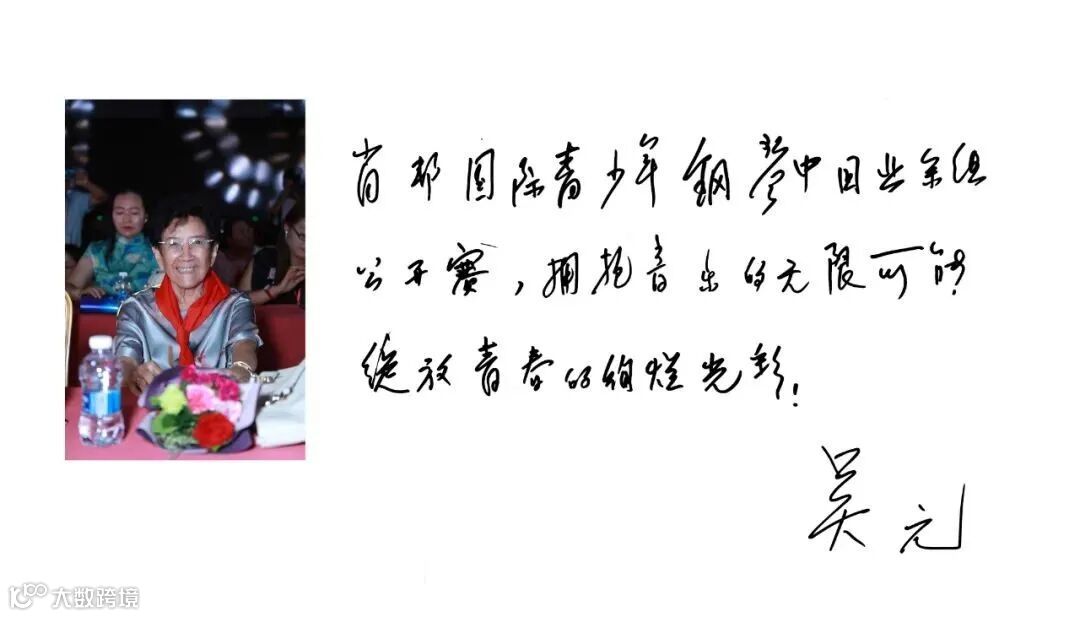 肖邦国际青少年钢琴中国业余组
公开赛，拥抱音乐的无限可能
绽放青春的绚烂光彩！
吴元
大数跨境